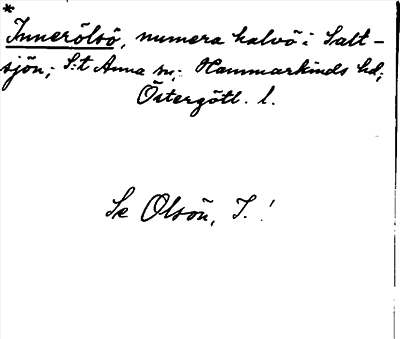 *
Innerölsö, numera halvö i Salt-
sjön; S:t Anna sn; Hammarkinds hd;
Östergötl. l.
Se Olsön, I.!